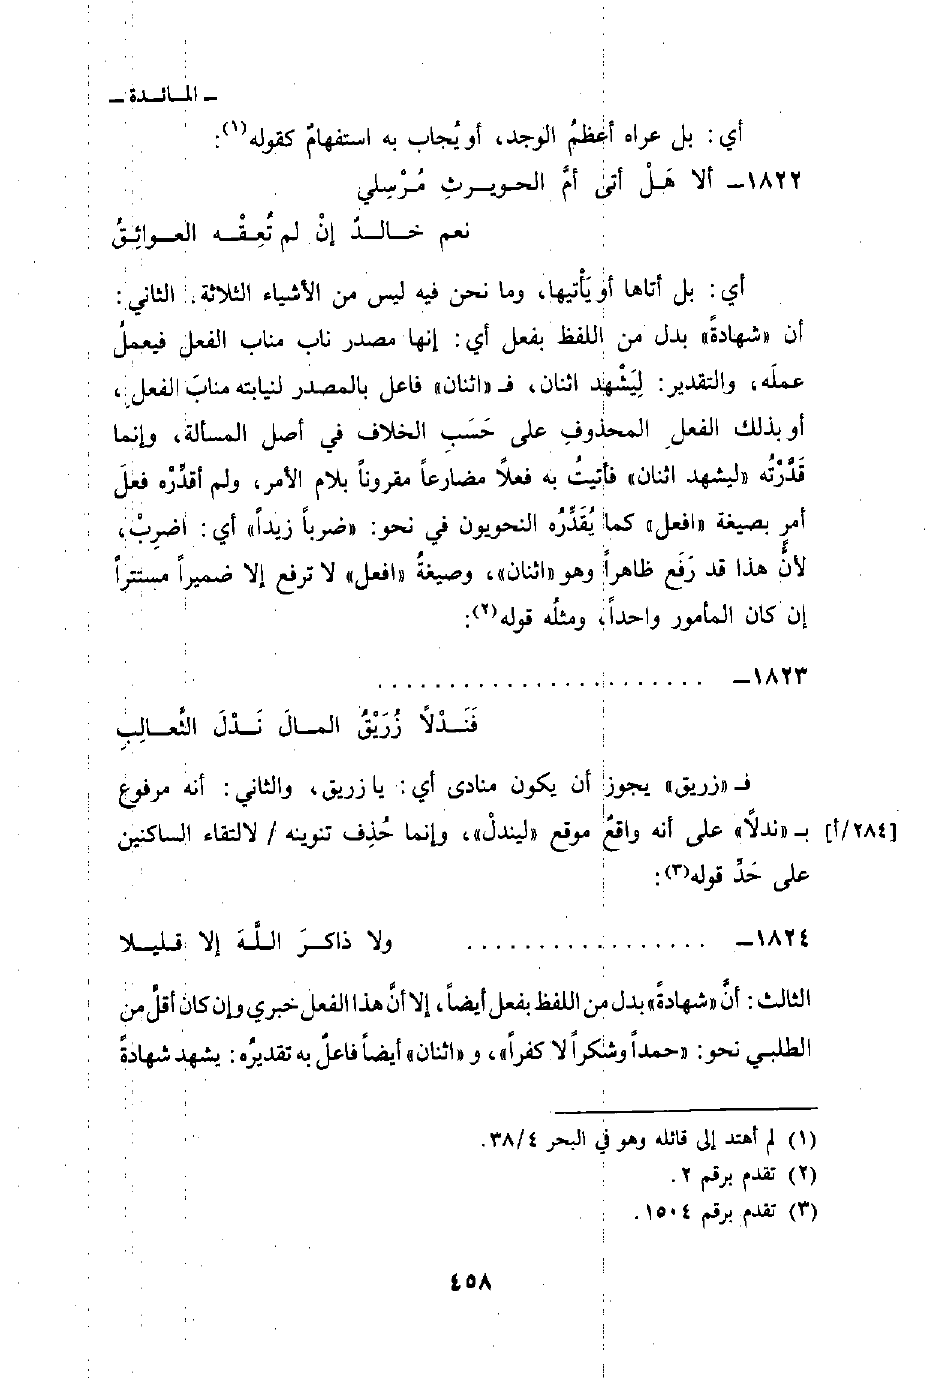 ـ المائدة ـ
أي: بل عراه أعظمُ الوجد، أو يُجاب به استفهامٌ كقوله(١):
١٨٢٢ـ ألا هَلْ أتى أمَّ الحويرثِ مُرْسِلي
نعم خالدٌ إنْ لم تُعِقْه العوائِقُ
أي: بل أتاها أو يَأْتيها، وما نحن فيه ليس من الأشياء الثلاثة. الثاني:
أن «شهادةً» بدل من اللفظ بفعل أي: إنها مصدر ناب مناب الفعل فيعملُ
عملَه، والتقدير: لِيَشْهد اثنان، فـ «اثنان» فاعل بالمصدر لنيابته منابَ الفعلِ،
أو بذلك الفعلِ المحذوفِ على حَسَبِ الخلاف في أصل المسألة، وإنما
قَدَّرْتُه «ليشهد اثنان» فأتيتُ به فعلاً مضارعاً مقروناً بلام الأمر، ولم أقدِّرْه فعلَ
أمرٍ بصيغة «افعل» كما يُقَدِّرُه النحويون في نحو: «ضرباً زيداً» أي: اضرِبْ،
لأنَّ هذا قد رَفَع ظاهراً وهو «اثنان»، وصيغةُ «افعل» لا ترفع إلا ضميراً مستتراً
إن كان المأمور واحداً، ومثلُه قوله(٢):
١٨٢٣ـ . . . . . . . . . . . . . . . . . . . . . . .
فَنَدْلاً زُرَيْقُ المالَ نَدْلَ الثَّعالِبِ
فـ «زريق» يجوز أن يكون منادى أي: يا زريق، والثاني: أنه مرفوع
[٢٨٤/أ] بـ «ندلاً» على أنه واقعٌ موقع «ليندلْ»، وإنما حُذِف تنوينه / لالتقاء الساكنين
على حَدِّ قوله(٣):
١٨٢٤ـ . . . . . . . . . . . . . . . . . ولا ذاكرَ اللَّهَ إلا قليلا
الثالث: أنَّ «شهادةً» بدل من اللفظ بفعل أيضاً، إلا أنَّ هذا الفعل خبري وإن كان أقلَّ من
الطلبي نحو: «حمداً وشكراً لا كفراً»، و «اثنان» أيضاً فاعلٌ به تقديرُه: يشهد شهادةً
(١) لم أهتد إلى قائله وهو في البحر ٣٨/٤.
(٢) تقدم برقم ٢.
(٣) تقدم برقم ١٥٠٤.
٤٥٨